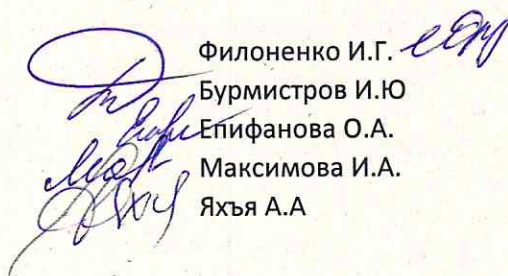 Филоненко И.Г.
Бурмистров И.Ю
Епифанова О.А.
Максимова И.А.
Яхъя А.А